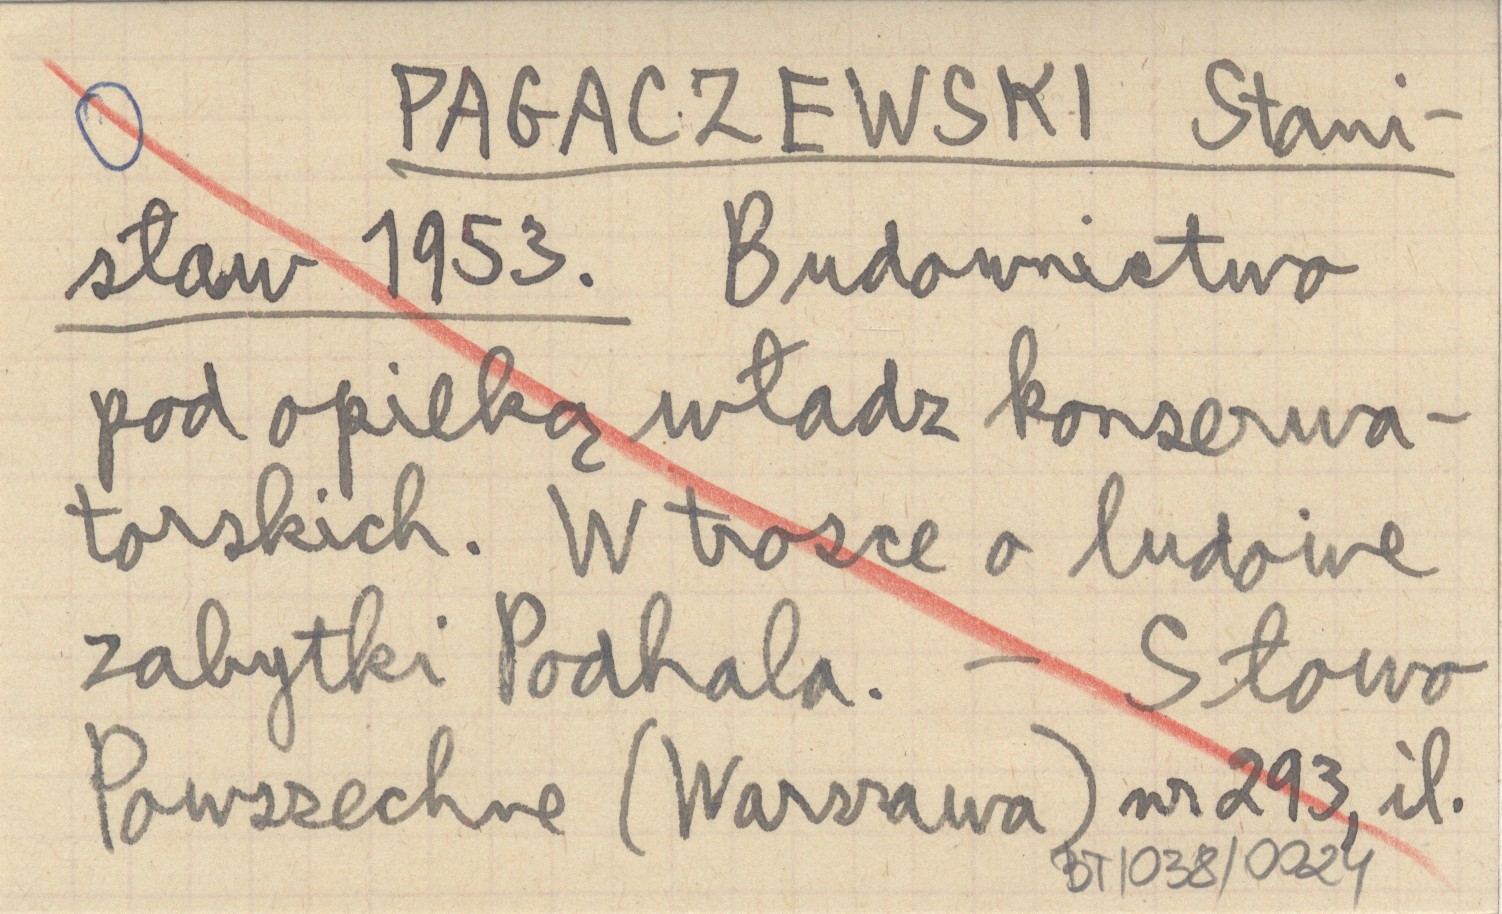 PAGACZEWSKI Stani-
sław 1953. Budownictwo
pod opieką władz konserwa-
torskich. W trosce o ludowe
zabytki Podhala. – Słowo
Powszechne (Warszawa) nr 293, il.
BT/038/0024